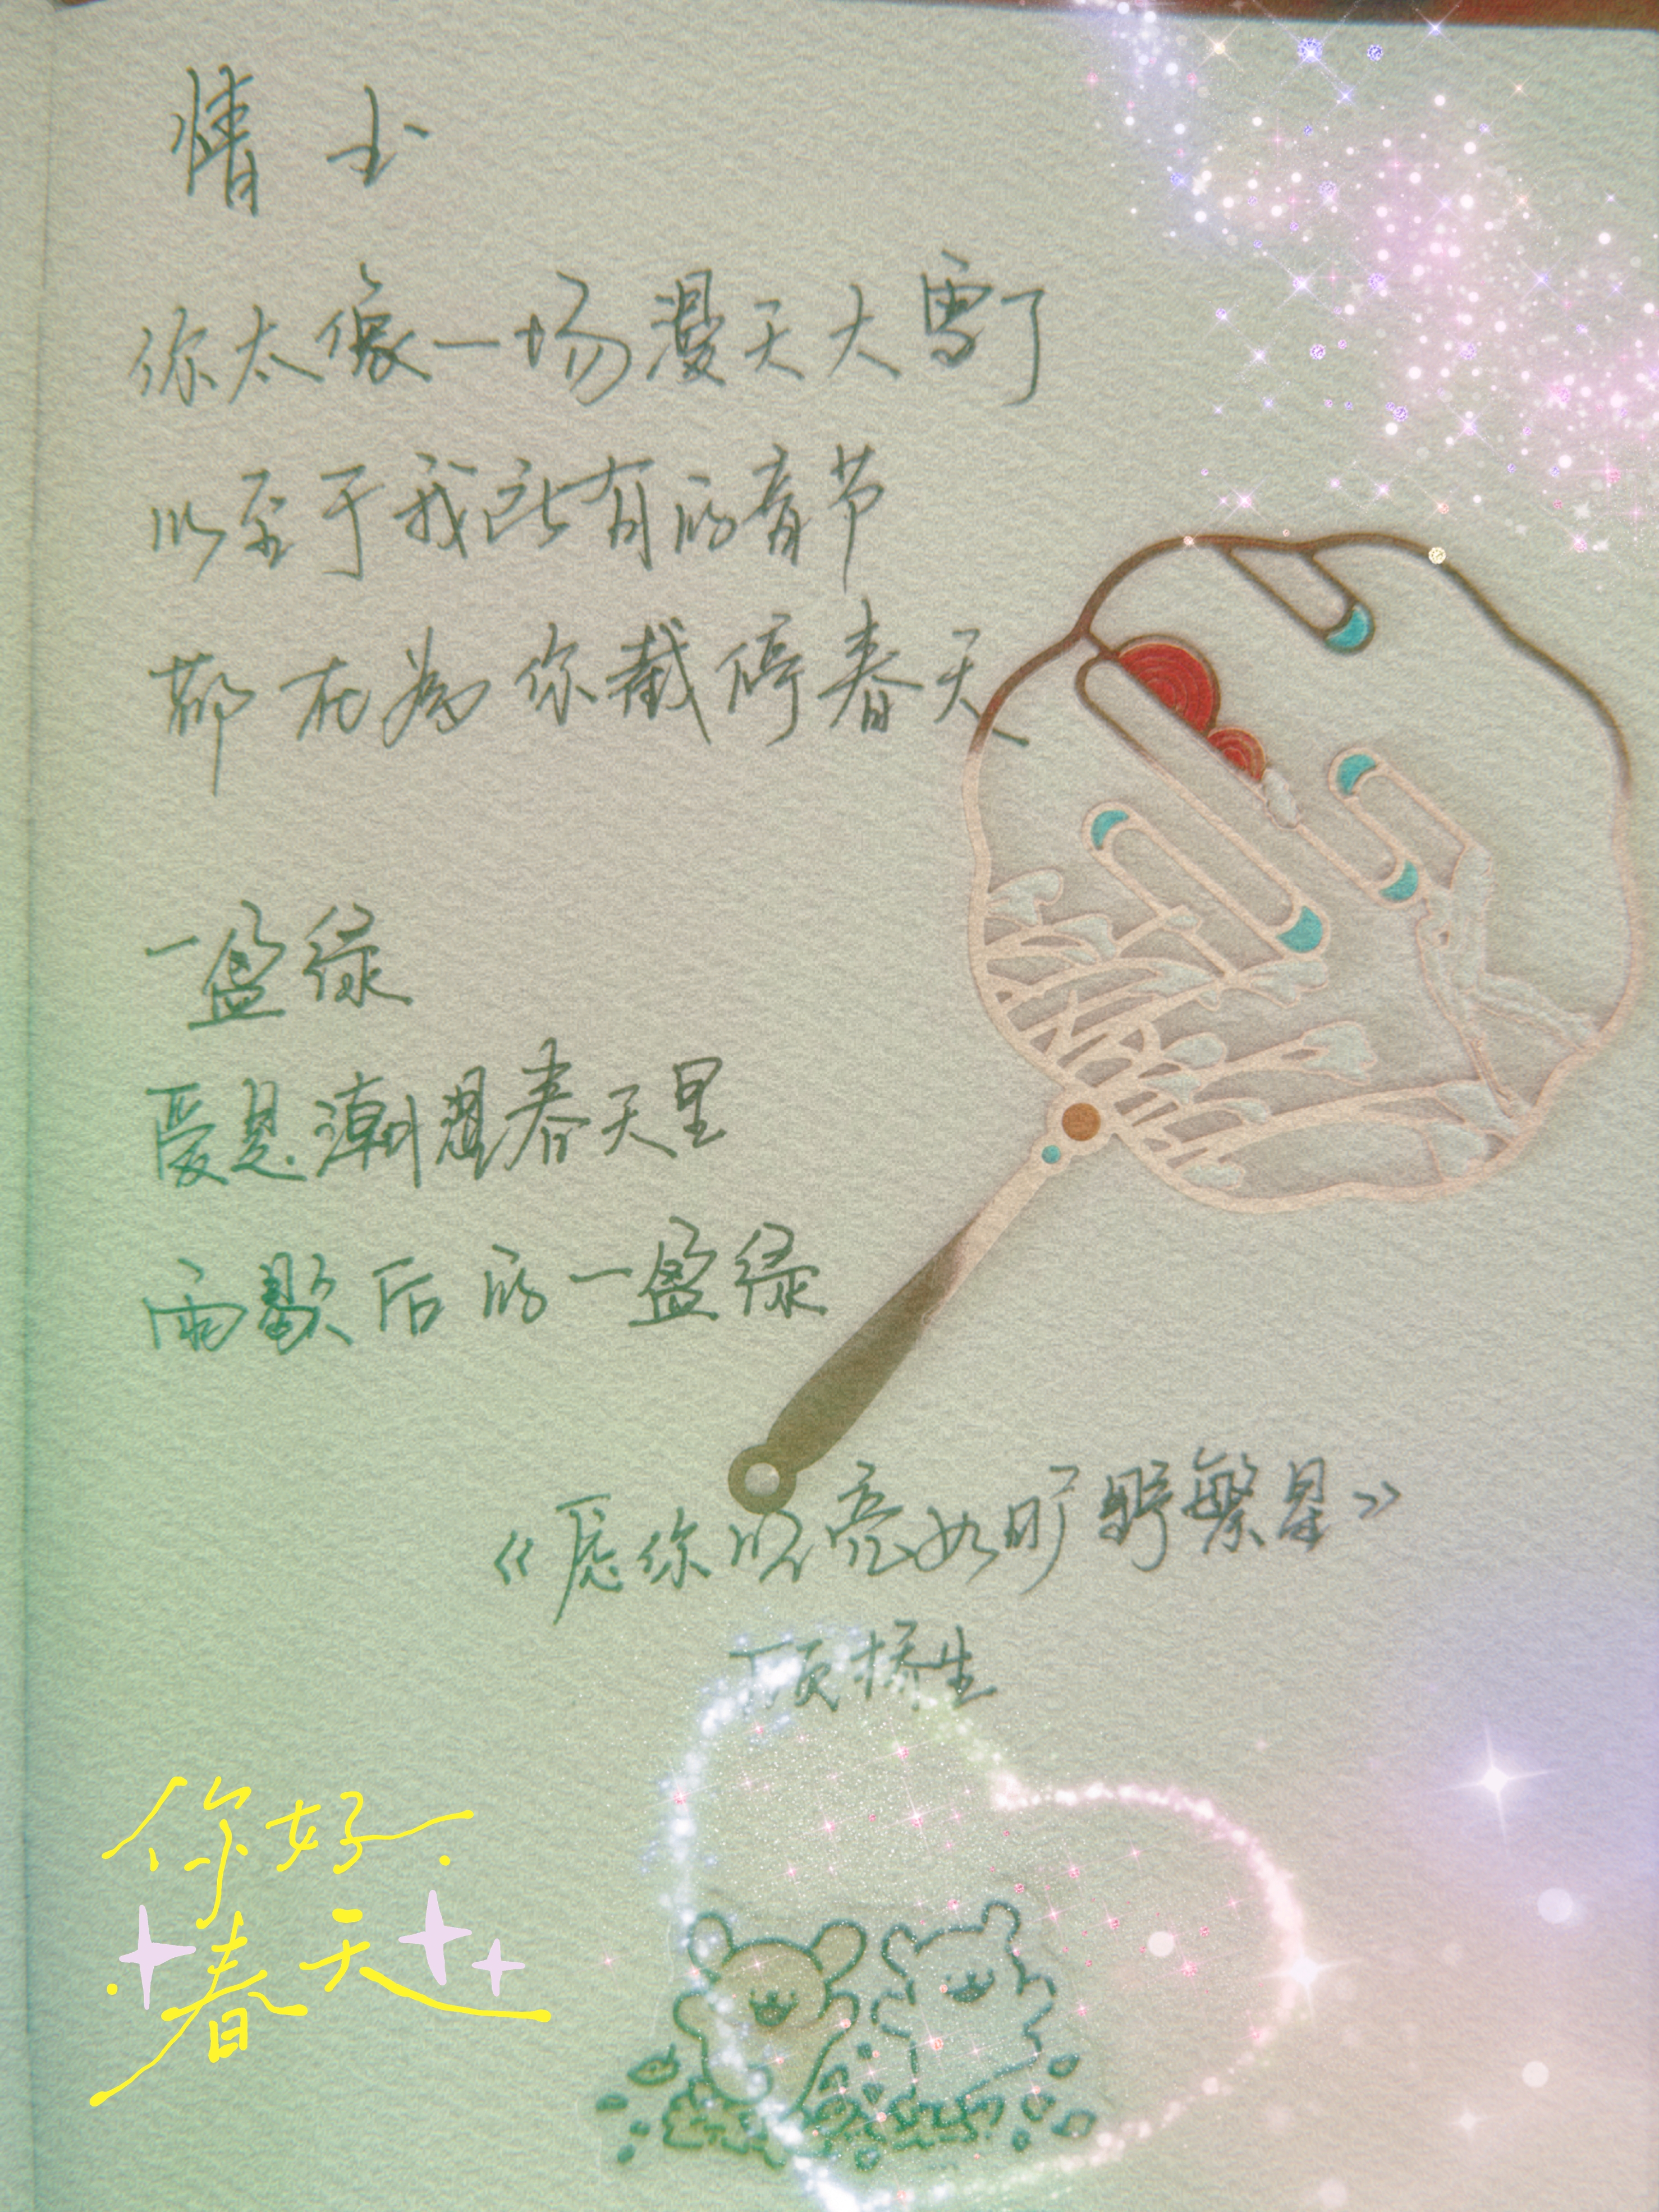 情书
你太像一场漫天大雪了
以至于我所有的音节
都在为你截停春天
一盈绿
爱是潮湿春天里
雨歇后的一盈绿
《愿你明亮如旷野繁星》
顶桥生
你好
春天